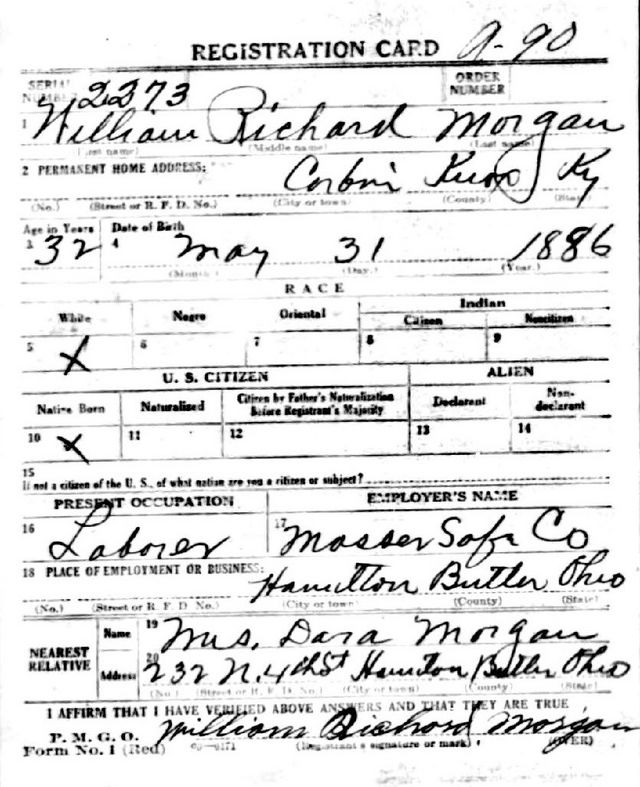 REGISTRATION CARD A-90
SERIAL NUMBER 2373 ORDER NUMBER
1 William Richard Morgan
(First name) (Middle name) (Last name)
2 PERMANENT HOME ADDRESS:
Corbin Knox Ky
(No.) (Street or R. F. D. No.) (City or town) (County) (State)
Age in Years Date of Birth
3 32 4 May 31 1886
(Month.) (Day.) (Year.)
RACE
White Negro Oriental Indian
Citizen Noncitizen
5 X 6 7 8 9
U. S. CITIZEN ALIEN
Native Born Naturalized Citizen by Father's Naturalization Before Registrant's Majority Declarant Non-declarant
10 X 11 12 13 14
15
If not a citizen of the U. S., of what nation are you a citizen or subject?
PRESENT OCCUPATION EMPLOYER'S NAME
16 Laborer 17 Mosser Safe Co
18 PLACE OF EMPLOYMENT OR BUSINESS:
Hamilton Butler Ohio
(No.) (Street or R. F. D. No.) (City or town) (County) (State)
NEAREST RELATIVE
Name 19 Mrs. Dara Morgan
Address 20 232 N. 4th St Hamilton Butler Ohio
(No.) (Street or R. F. D. No.) (City or town) (County) (State)
I AFFIRM THAT I HAVE VERIFIED ABOVE ANSWERS AND THAT THEY ARE TRUE
P. M. G. O.
Form No. 1 (Red) William Richard Morgan
(Registrant's signature or mark) (OVER)